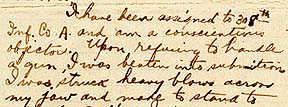 I have been assigned to 308th
Inf. Co A. and am a conscientious
objector. Upon refusing to handle
a gun, I was beaten into submission
I was struck heavy blows across
my jaw and made to stand to